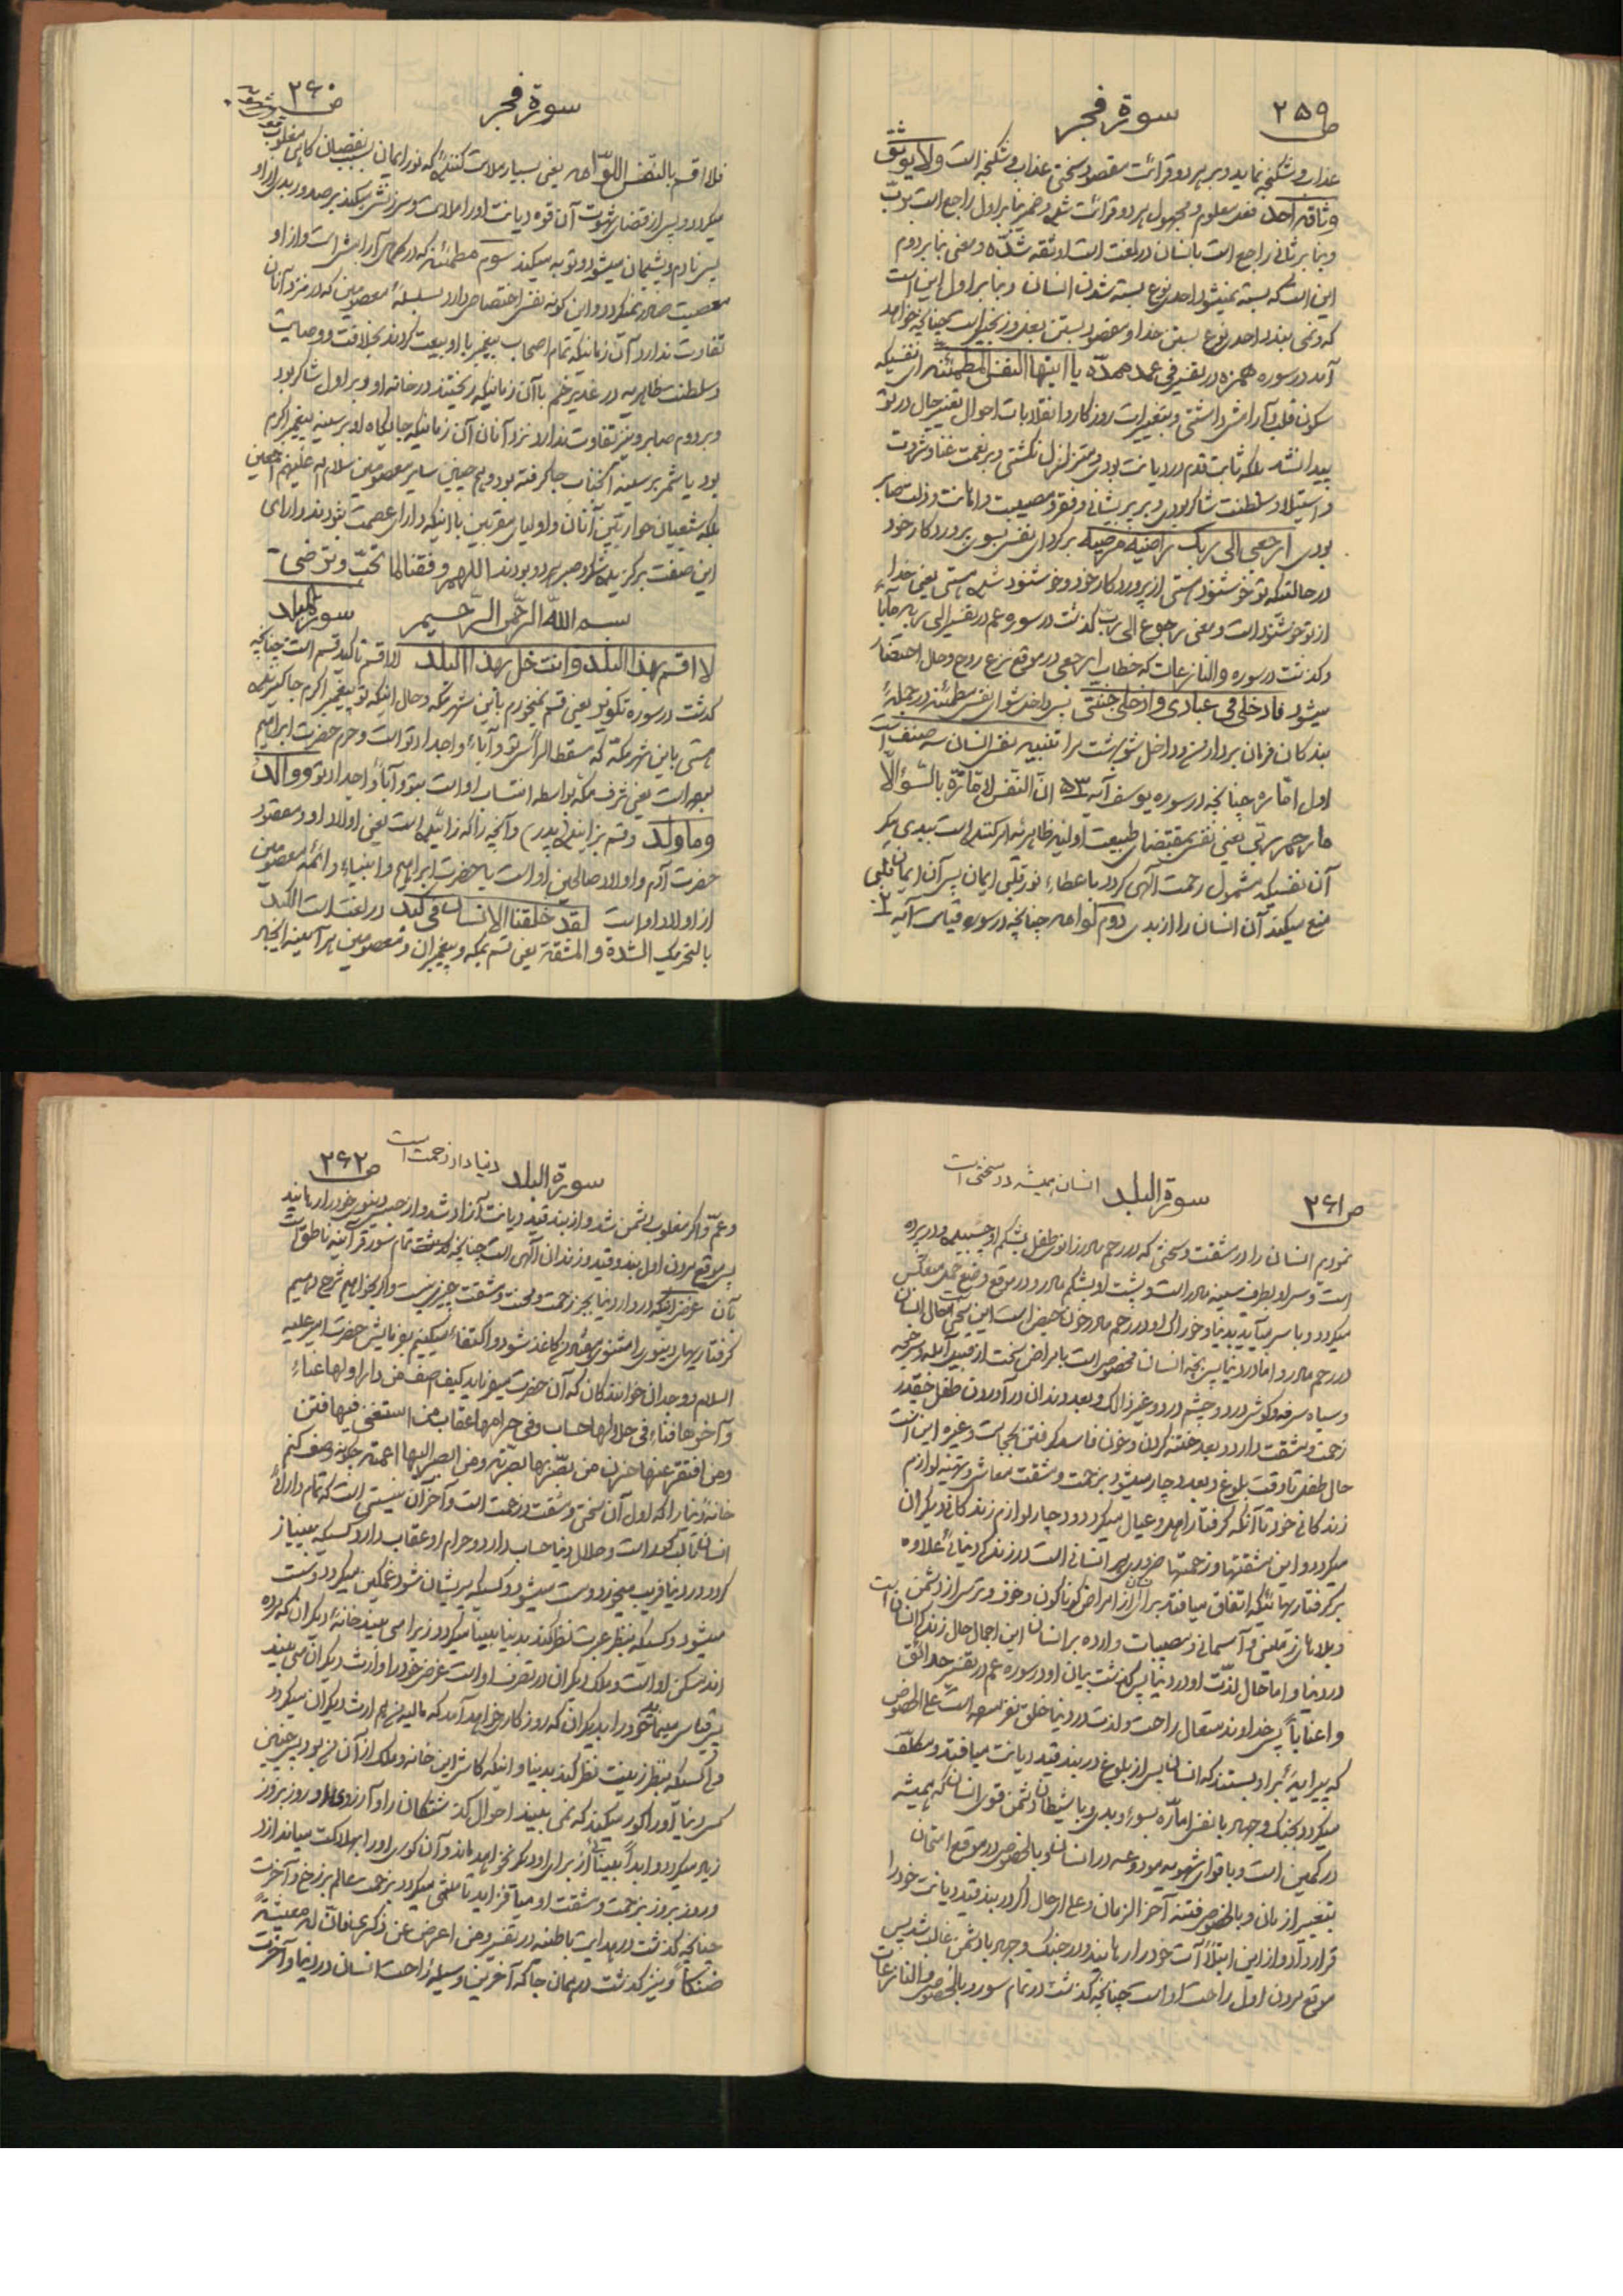 ص ۲۵۹
سورة فجر
عذاب و شکنجه نماید و بر هر دو قرائت مقصود سختی عذاب و شکنجه است ولا یوثق
وثاقه احد فعل معلوم و مجهول هر دو قرائت شده و ضمیر بنابر اول راجع است برب
و بنا بر ثانی راجع است بانسان در لغت است اوثقه شدّه و معنی بنا بر دوم
این است که بسته نمیشود احدی نوع بسته شدن انسان و بنابر اول این است
که نمی بندد احدی نوع بستن خدا و مقصود بستن بغل و زنجیر است چنانچه خواهد
آمد در سوره همزه در تفسیر فی عمد ممدّده یا ایتها النفس المطمئنه ای نفسیکه
سکون قلب و آرامش داشتی و بتغییرات روزکار و انقلابات احوال تغییر حال در تو
پیدا نشد بلکه ثابت قدم در دیانت بودی و متزلزل نکشتی و بر نعمت غنا و ثروت
و استیلا و سلطنت شاکر بودی و بر پریشانی و فقر و مصیبت و اهانت و ذلت صابر
بودی ارجعی الی ربک راضیة مرضیة برکرد ای نفس بسوی پروردکار خود
در حالتیکه تو خوشنود هستی از پروردکار خود و خوشنود شده هستی یعنی خداء
از تو خوشنود است و معنی رجوع الی ربّ کذشت در سوره عم در تفسیر الی ربه مآبا
و کذشت در سوره والنازعات که خطاب ارجعی در موقع نزع روح و حال احتضار
میشود فادخلی فی عبادی وادخلی جنتی پس داخل شو ای نفس مطمئنه در جملهٔ
بندکان فرمان بردار من و داخل شو بهشت مرا تنبیه نفس انسان سه صنف است
اول امّاره چنانچه در سوره یوسف آیه ۵۳ انّ النّفس لامّارة بالسّوء الّا
ما رحم ربّی یعنی نفس بمقتضای طبیعت اولیه ظاهریه امر کننده است ببدی مکر
آن نفسیکه مشمول رحمت آلهی کردد باعطاء نور قلبی ایمان پس آن ایمان قلبی
منع میکند آن انسان را از بدی دوم لوامه چنانچه در سوره قیامت آیه ۲
ص ۲۶۰
سورة فجر
فلا اقسم بالنّفس اللّوّامه یعنی بسیار ملامت کننده که نور ایمان بسبب نقصان کاهی مغلوب
میکردد و پس از قضای شهوت آن قوه دیانت او را ملامت و سرزنش میکند بر صدور بدی از او
پس نادم و پشیمان میشود و توبه میکند سوم مطمئنه که در کمال آرامش است و از او
معصیت صادر نمیکردد و این کونه نفس اختصاص دارد بسلسلهٔ معصومین که در نزد آنان
تفاوت ندارد آن زمانیکه تمام اصحاب پیغمبر با او بیعت کردند بخلافت و وصایت
و سلطنت ظاهریه در غدیر خم با آن زمانیکه ریختند در خانه او و بر اول شاکر بود
و بر دوم صابر و نیز تفاوت ندارد نزد آنان آن زمانیکه جایکاه او بر سینه پیغمبر اکرم
بود یا شمر بر سینه آنجناب جا کرفته بود و هم چنین سایر معصومین سلام اله علیهم اجمعین
بلکه شیعیان حواریّین آنان و اولیای مقربین با اینکه دارای عصمت نبودند دارای
این صفت برکزیده شکر و صبر هر دو بودند اللهم وفقنا لما تحبّ و ترضی
بسم اللّه الرّحمن الرّحیم سورة البلد
لا اقسم بهذا البلد وانت حل بهذا البلد لا اقسم تاکید قسم است چنانچه
کذشت در سوره تکویر یعنی قسم میخورم باین شهر مکه و حال اینکه تو پیغمبر اکرم جا کزیده
هستی باین شهر مکّه که مسقط الرأس تو و آباء و اجداد تو است و حرم حضرت ابراهیم
بوده است یعنی شرف مکه بواسطه انتساب او است بتو و آباء و اجداد تو و والد
وما ولد و قسم بزاینده (پدر) و آنچه زاکه زائیده است یعنی اولاد او و مقصود
حضرت آدم و اولاد صالحین او است یا حضرت ابراهیم و انبیاء و ائمّه معصومین
از اولاد او است لقد خلقنا الانسان فی کبد در لغت است الکبد
بالتحریک الشدة و المشقة یعنی قسم بمکه و پیغمبران و معصومین هر آینه ایجاد
ص ۲۶۱
سورة البلد انسان همیشه در سختی است
نمودیم انسان را در مشقت و سختی که در رحم مادر زانوی طفل بشکم او چسبیده و در پرده
است و سر او بطرف سینه مادر است و پشت او بشکم مادر و در موقع وضع حمل منعکس
میکردد و با سر میآید بدنیا و خوراک او در رحم مادر خون حیض است این سختی حال انسان
در رحم مادر و اما در دنیا پس بچه انسان مخصوص است بامراض سخت از قبیل آبله و سرخجه
و سیاه سرفه و کوش درد و چشم درد و غیر ذالک و بعد دندان در آوردن طفل چقدر
زحمت و مشقت دارد و بعد ختنه کردن و خون فاسد کرفتن بحجامت و غیره این است
حال طفل تا وقت بلوغ و بعد دچار میشود بزحمت و مشقت معاش و تهیه لوازم
زندکانی خود تا آنکه کرفتار اهل و عیال میکردد و دچار لوازم زندکانی دیکران
میکردد و این مشقتها و زحمتها ضروری هر انسانی است در زندکی دنیا علاوه
بر کرفتاریهائیکه اتفاق میافتد برای او از امراض کوناکون و خوف و ترس از دشمن
و بلاهای زمینی و آسمانی و مصیبات وارده بر انسان این اجمال حال زندکی انسان است
در دنیا و اما حال لذّت او در دنیا پس کذشت بیان او در سوره عم در تفسیر حدائق
و اعنابا پس خداوند متعال راحت و لذت در دنیا خلق نفرموده است علی الخصوص
که پیرایهٔ بر او بستند که انسان پس از بلوغ در بند قید دیانت میافتد و مکلّف
میکردد بجنک و جهاد با نفس امّاره بسوء و بدی و با شیطان دشمن قوی انسان که همیشه
در کمین است و با قوای شهویه مودوعه در انسان و بالخصوص در موقع امتحان
بتغییر ازمان و بالخصوص فتنه آخر الزمان و علی ایّ حال اکر در بند قید دیانت خود را
قرار داد و از این ابتلاآت خود را رهانید و در جنک و جهاد با دشمن غالب شد پس
موقع مردن اول راحت او است چنانچه کذشت در تمام سور و بالخصوص والنازعات
ص ۲۶۲
سورة البلد دنیا دار زحمت است
و عمّ و اکر مغلوب دشمن شد و از بند قید دیانت آزاد شد و از حبس دینوی خود را رهانید
پس موقع مردن اول بند و قید و زندان آلهی است چنانچه کذشت تمام سور قرآنیه ناطق است
بآن غرض اینکه در دار دنیا بجز زحمت و محنت و مشقت چیزی نیست و اکر بخواهیم شرح دهیم
کرفتاریهای دینوی را مثنوی هفتاد من کاغذ شود و اکتفاء میکنیم بفرمایش حضرت امیر علیه
السلام و وجدان خوانندکان که آن حضرت میفرماید کیف اصف من دار اولها عناء
و آخرها فناء فی حلالها حساب و فی حرامها عقاب من استغنی فیها فتن
و من افتقر عنها حزن من بصّر بها بصّرته و من ابصر الیها اعمته چکونه وصف کنم
خانهٔ دنیا را که اول آن سختی و مشقت و زحمت است و آخر آن نیستی است که تمام دارائی
انسان مالک کمد است و حلال دنیا حساب دارد و حرام او عقاب دارد کسیکه بینیاز
کردد در دنیا فریب میخورد و مست میشود و کسیکه پریشان شود غمکین میکردد
میشود و کسیکه بنظر عبرت نظر کند بدنیا بینا میکردد زیرا می بیند خانهٔ دیکران که مرده
اند مسکن او است و ملک دیکران در تصرف او است عرض خود را وارث دیکران می بیند
پس قیاس مینماید خود را بدیکران که روزکار خواهد آمد که مالیه من هم ارث دیکران میکردد
و اما کسیکه بنظر زینت نظر کند بدنیا و اینکه کاش این خانه و ملک از آن من بود پس چنین
کس دنیا او را کور میکند که نمی بیند احوال کذشتکان را و آرزوی او روز بروز
زیاد میکردد و ابداً بینائی از برای او دیکر نخواهد ماند و آن کوری او را بهلاکت میاندازد
و روز بروز بزحمت و مشقت او میافزاید تا منتهی میکردد بزحمت عالم برزخ و آخرت
چنانچه کذشت در هدایت باطنه در تفسیر و من اعرض عن ذکری فانّ له معیشةً
ضنکاً و نیز کذشت در همان جا که آخرین وسیله راحت انسان در دنیا و آخرت